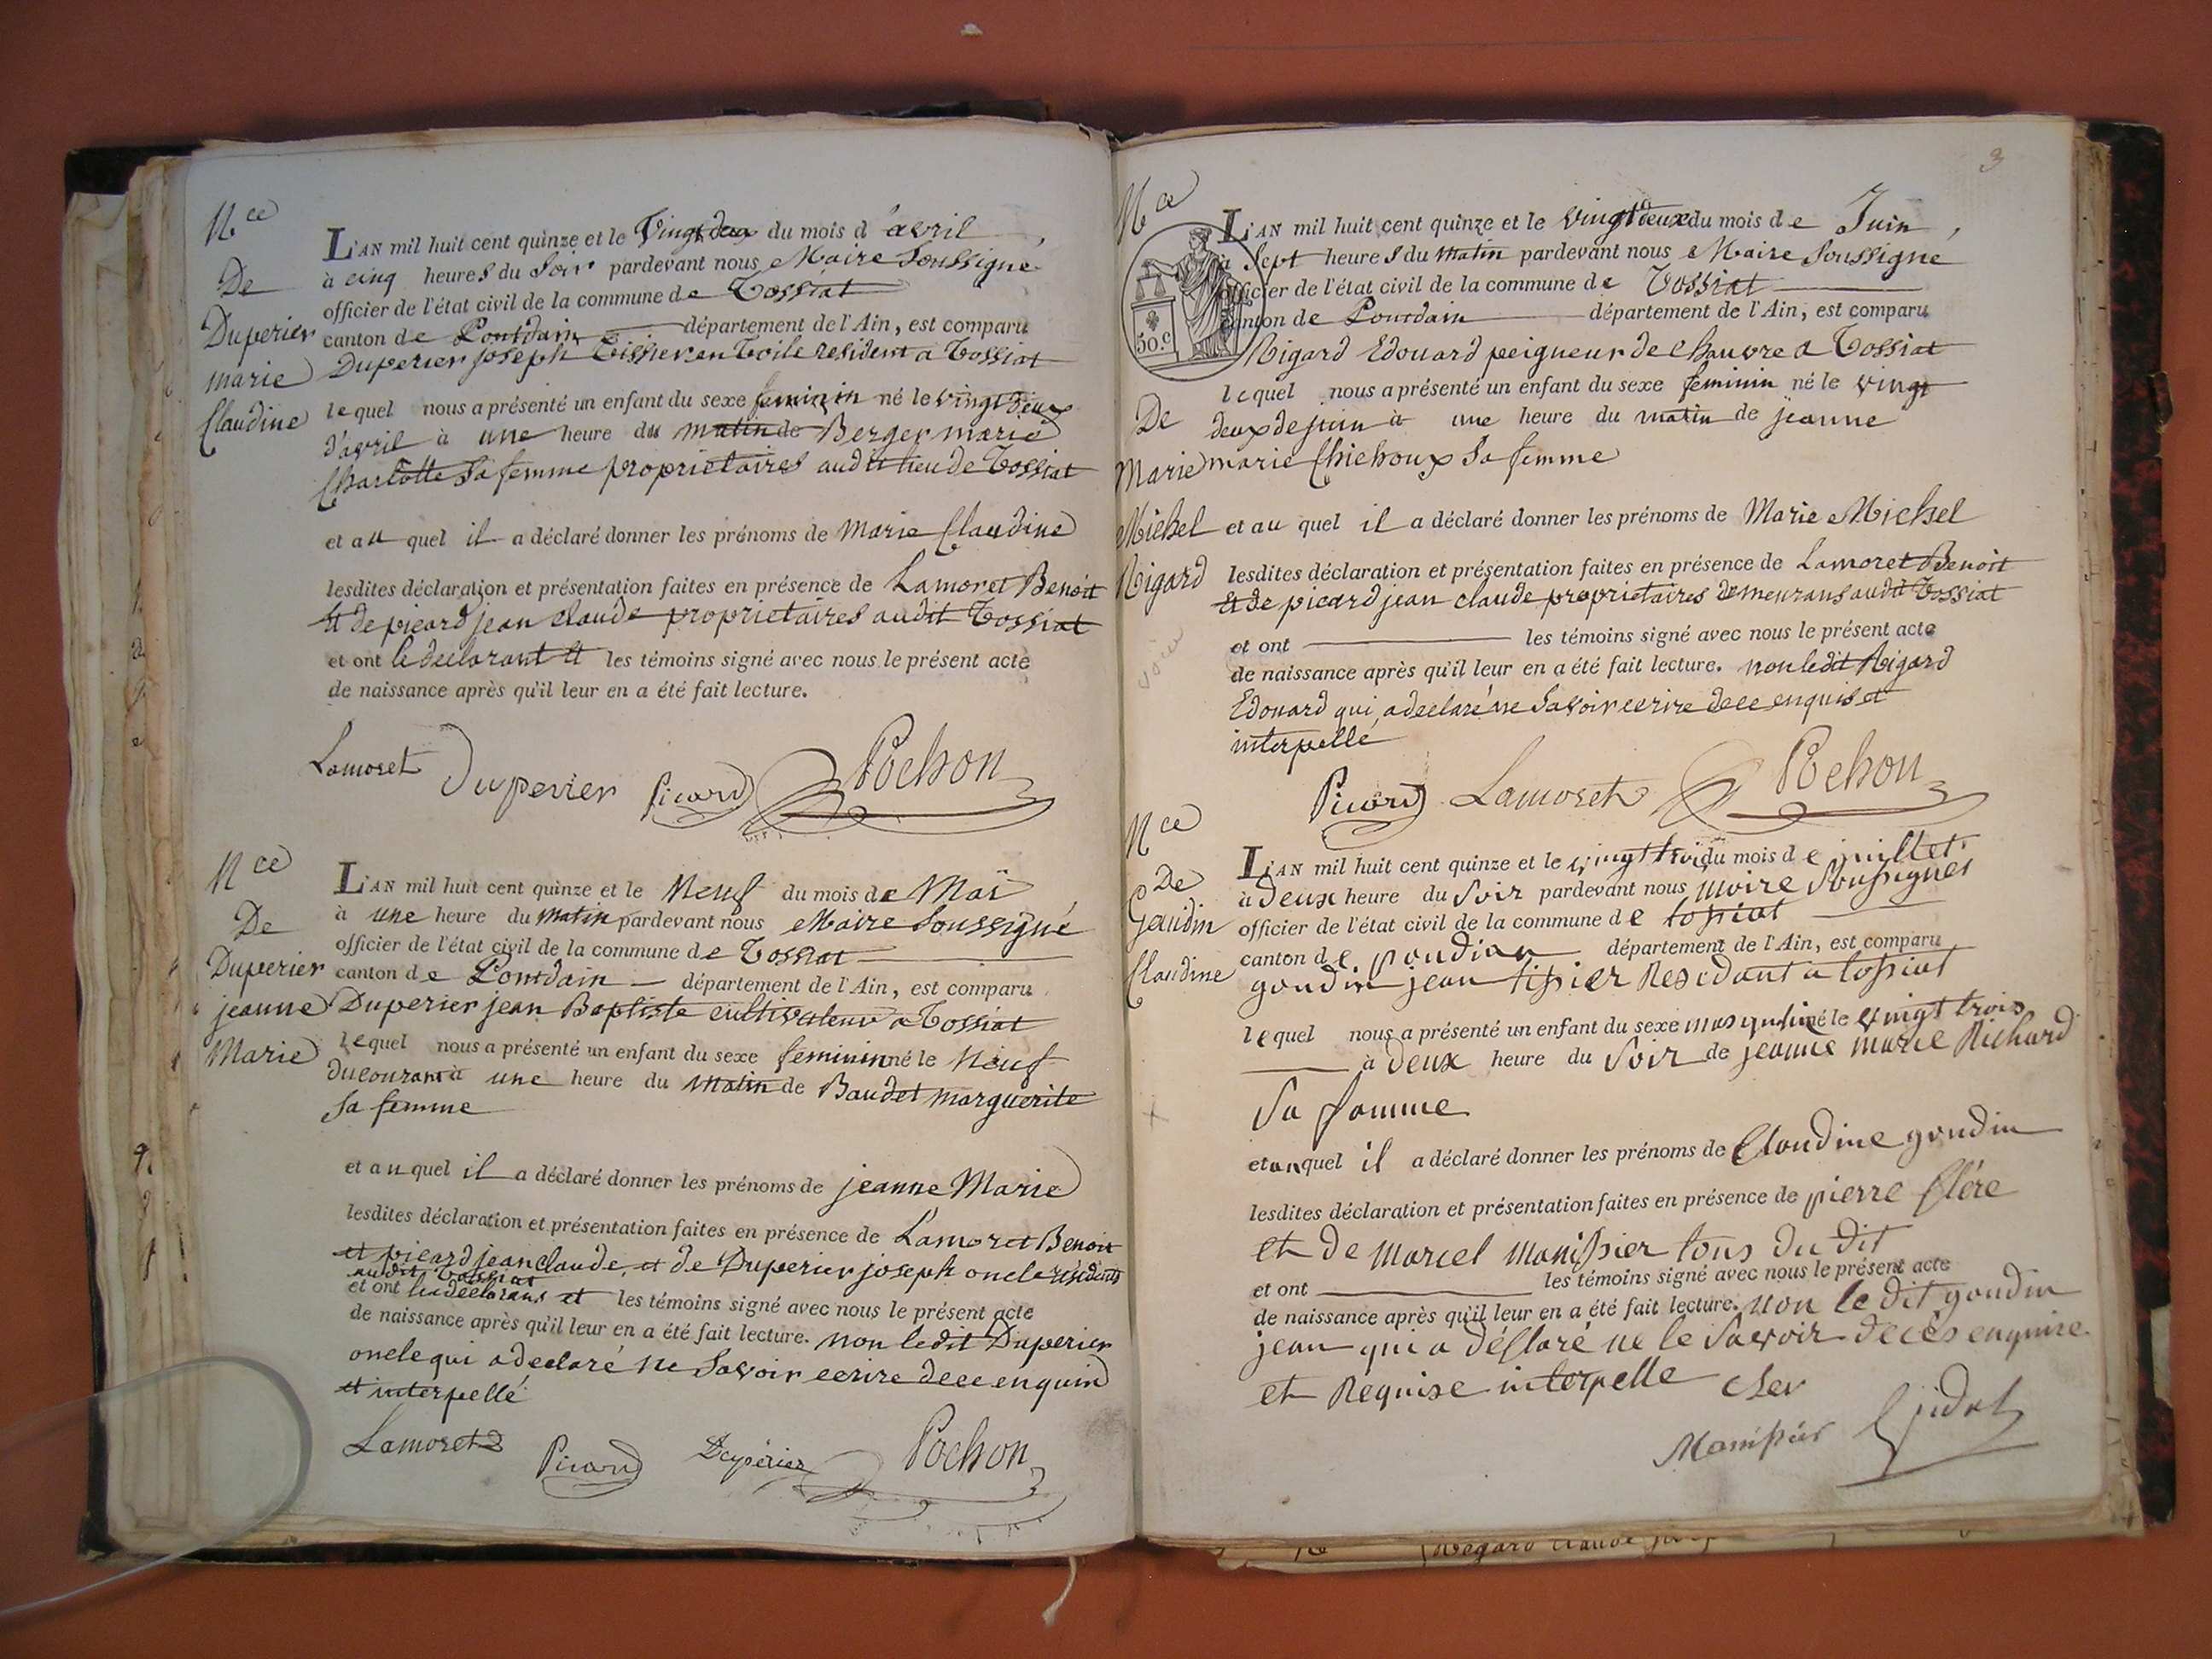 Nce
De
Duperier
marie
Claudine
L'AN mil huit cent quinze et le Vingt deux du mois d'avril
à cinq heures du Soir pardevant nous Maire Soussigné
officier de l'état civil de la commune de Tossiat
canton de Pontdain département de l'Ain, est comparu
Duperier joseph Tissier en Toile resident a Tossiat
lequel nous a présenté un enfant du sexe feminin né le vingt deux
d'avril à une heure du matin de Berger marie
Charlotte Sa femme proprietaires audit lieu de Tossiat
et au quel il a déclaré donner les prénoms de Marie Claudine
lesdites déclaration et présentation faites en présence de Lamoret Benoit
et de picard jean claude proprietaires audit Tossiat
et ont le declarant et les témoins signé avec nous le présent acte
de naissance après qu'il leur en a été fait lecture.
Lamoret Duperier Picard Pochon
Nce
De
Duperier
jeanne
Marie
L'AN mil huit cent quinze et le Neuf du mois de Mai
à une heure du matin pardevant nous Maire Soussigné
officier de l'état civil de la commune de Tossiat
canton de Pontdain département de l'Ain, est comparu
Duperier jean Baptiste cultivateur a Tossiat
lequel nous a présenté un enfant du sexe feminin né le Neuf
du courant à une heure du matin de Baudet marguerite
Sa femme
et au quel il a déclaré donner les prénoms de jeanne Marie
lesdites déclaration et présentation faites en présence de Lamoret Benoit
et picard jean claude, et de Duperier joseph oncle residents
audit Tossiat
et ont les declarans et les témoins signé avec nous le présent acte
de naissance après qu'il leur en a été fait lecture. non ledit Duperier
oncle qui a declaré ne Savoir ecrire de ce enquis
et interpellé
Lamoret Picard Duperier Pochon
3
Nce
De
Marie
Michel
Rigard
50.c
L'AN mil huit cent quinze et le vingt deux du mois de Juin
à Sept heures du matin pardevant nous Maire Soussigné
officier de l'état civil de la commune de Tossiat
canton de Pontdain département de l'Ain, est comparu
Rigard Edouard peigneur de chauvre a Tossiat
lequel nous a présenté un enfant du sexe feminin né le vingt
deux de juin à une heure du matin de jeanne
marie Chichoux Sa femme
et au quel il a déclaré donner les prénoms de Marie Michel
lesdites déclaration et présentation faites en présence de Lamoret Benoit
et de picard jean claude proprietaires demeurans audit Tossiat
et ont les témoins signé avec nous le présent acte
de naissance après qu'il leur en a été fait lecture. non ledit Rigard
Edouard qui a declaré ne Savoir ecrire de ce enquis et
interpelle
Picard Lamoret Pochon
Nce
De
Gaudin
Claudine
L'AN mil huit cent quinze et le vingt trois du mois de juillet
à deux heure du Soir pardevant nous moire Sousignes
officier de l'état civil de la commune de tosiat
canton de pondian département de l'Ain, est comparu
goudin jean tisier Residant a tosiat
lequel nous a présenté un enfant du sexe masquline né le vingt trois
à deux heure du Soir de jeanne marie Richard
Sa famme
et au quel il a déclaré donner les prénoms de Claudine goudin
lesdites déclaration et présentation faites en présence de pierre Clére
et de marcel manissier tous du dit
et ont les témoins signé avec nous le présent acte
de naissance après qu'il leur en a été fait lecture. non le dit goudin
jean qui a déclaré ne le Savoir de ces enquise
et Requise interpelle cler
Manissier